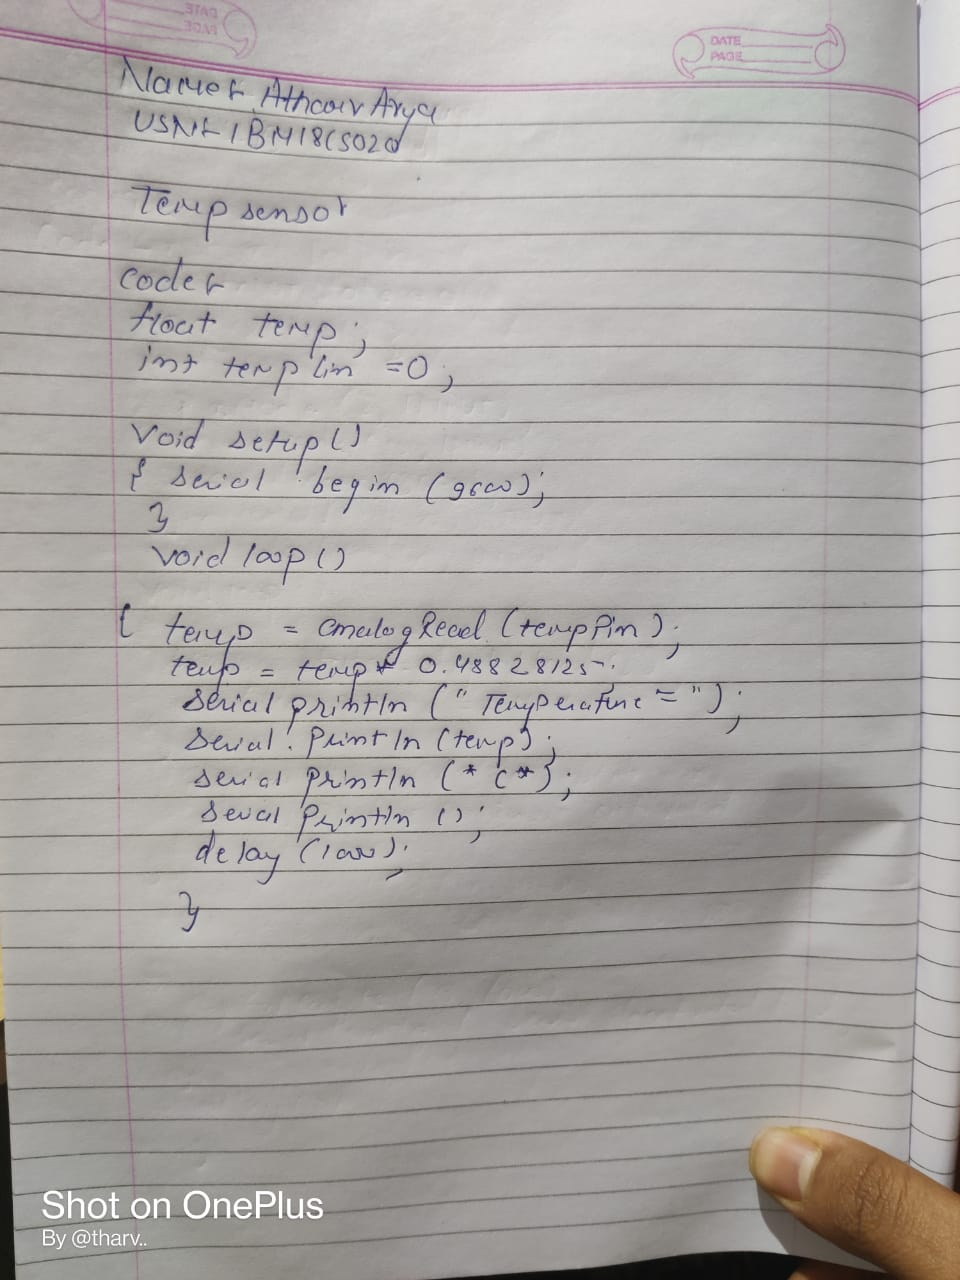 DATE
PAGE
DATE
PAGE
Name: Atharv Arya
USN: 1BM18CS020
Temp sensor
code:
float temp;
int tempPin =0;
Void setup()
{ serial . begin (9600);
}
void loop()
{ temp = analogRead (tempPin);
temp = temp * 0.48828125;
serial println ("Temperature = ");
serial . println (temp);
serial println (* C*);
serial println ();
delay (1000);
}
Shot on OnePlus
By @tharv..